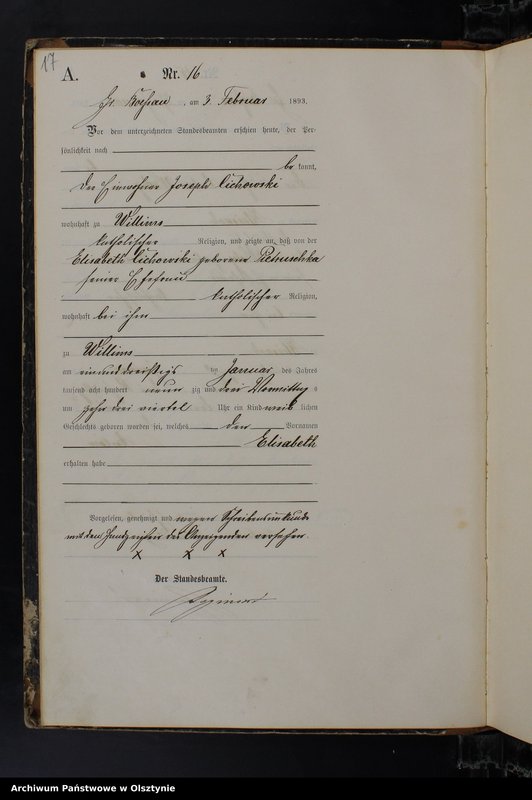 17
A.
Nr. 16
Gr. Bößau, am 3. Februar 1893.
Vor dem unterzeichneten Standesbeamten erschien heute, der Per-
sönlichkeit nach
be kannt,
der Einwohner Joseph Cichowski
wohnhaft zu Willims
katholischer Religion, und zeigte an, daß von der
Elisabeth Cichowski geborene Pietruschka
seiner Ehefrau
katholischer Religion,
wohnhaft bei ihm
zu Willims
am einunddreißigs ten Januar des Jahres
tausend acht hundert neun zig und drei Vormittag s
um zehn drei viertel Uhr ein Kind weib lichen
Geschlechts geboren worden sei, welches den Vornamen
Elisabeth
erhalten habe
Vorgelesen, genehmigt und wegen Schreibensunkunde
mit den Handzeichen des Anzeigenden versehen.
x x x
Der Standesbeamte.
Archiwum Państwowe w Olsztynie